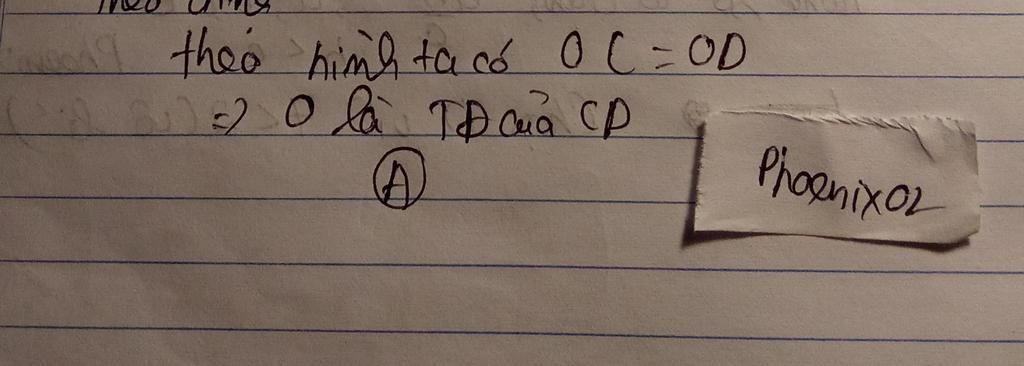 theo hình ta có OC = OD
=> O là TĐ của CD
A
Phoenix02